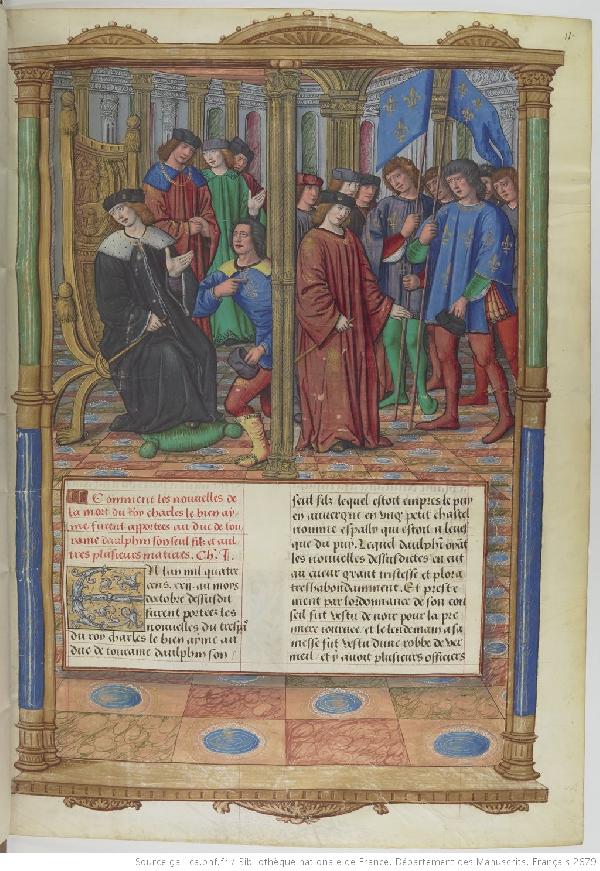 Comment les nouuelles de
la mort du roy charles le bien ay
me furent apportees au duc de tou
raine daulphin son seul filz et aul
tres plusieurs matieres. Ch. I.
En lan mil quatre
cens. xxij. au moys
doctobre dessusdit
furent portees les
nouuelles du tresp
du roy charles le bien ayme au
duc de touraine daulphin son
seul filz lequel estoit empres le puy
en auuergne en vng petit chastel
nomme espally qui estoit a leues
que du puy. Lequel daulphin oyāt
les nouuelles dessusdictes en eut
au cueur grant tristesse et plora
treshabondamment. Et preste
ment par lordonnance de son con
seil fut vestu de noir pour la pre
miere iournee. et le lendemain a sa
messe fut vestu dune robbe de ver
meil. et y auoit plusieurs officiers
Source gallica.bnf.fr / Bibliothèque nationale de France. Département des Manuscrits. Français 2679